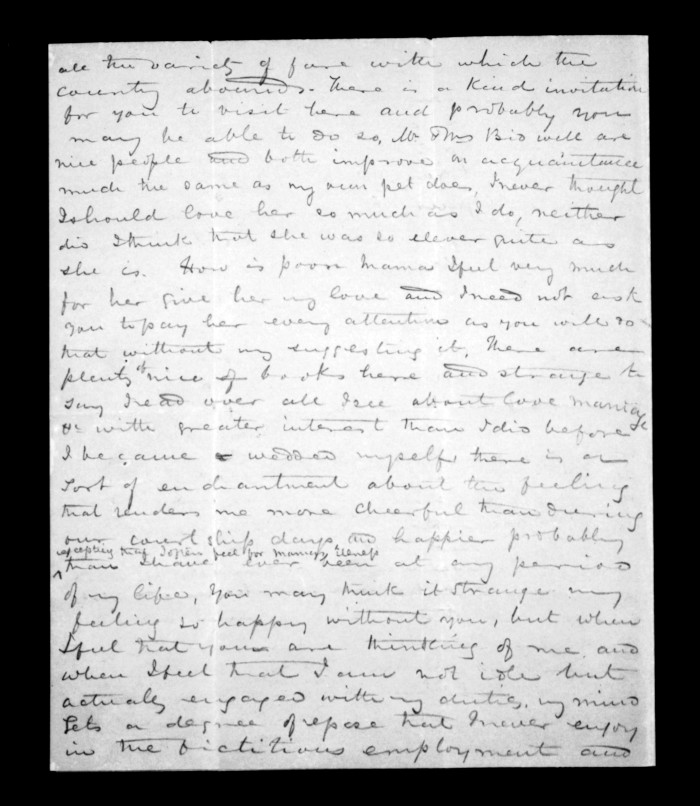 all the variety of fare with which the
country abounds. There is a kind invitation
for you to visit here and probably you
may be able to do so, Mr & Mrs Bidwell are
nice people and both improve on acquaintance
much the same as my own pet does, I never thought
I should love her so much as I do, neither
did I think that she was so clever quite as
she is. How is poor Mama I feel very much
for her give her my love and I need not ask
you to pay her every attention as you will do
that without my suggesting it, There are
plenty of nice books here and strange to
say I read over all I see about love marriage
&c with greater interest than I did before
I became wedded myself there is a
sort of enchantment about the feeling
that renders me more cheerful than during
our courtship days and happier probably
excepting that I often feel for Mamas illness
than I have ever been at any period
of my life, You may think it strange my
feeling so happy without you, but when
I feel that you are thinking of me and
when I feel that I am not idle but
actually engaged with my duties, my mind
gets a degree of repose that I never enjoy
in the fictitious employment and